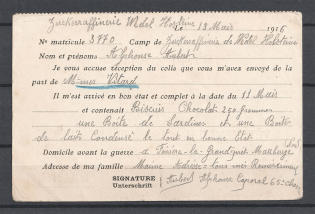 Zuckerraffinerie Wedel Holstein
Le 13 Mars 1916
Nº matricule 3770 Camp de Zuckerraffinerie de Wedel Holstein
Nom et prénoms Alphonse
Je vous accuse réception du colis que vous m'avez envoyé de la
part de Mmes
Il m'est arrivé en bon état et complet à la date du 11 Mars
et contenait Biscuits Chocolat 250 grammes
une Boîte de Sardines et une Boîte
de lait Condensé le tout en bonne Etat
Domicile avant la guerre a la Maubeuge
Adresse de ma famille Même Adresse
SIGNATURE
Unterschrift
Alphonse Caporal